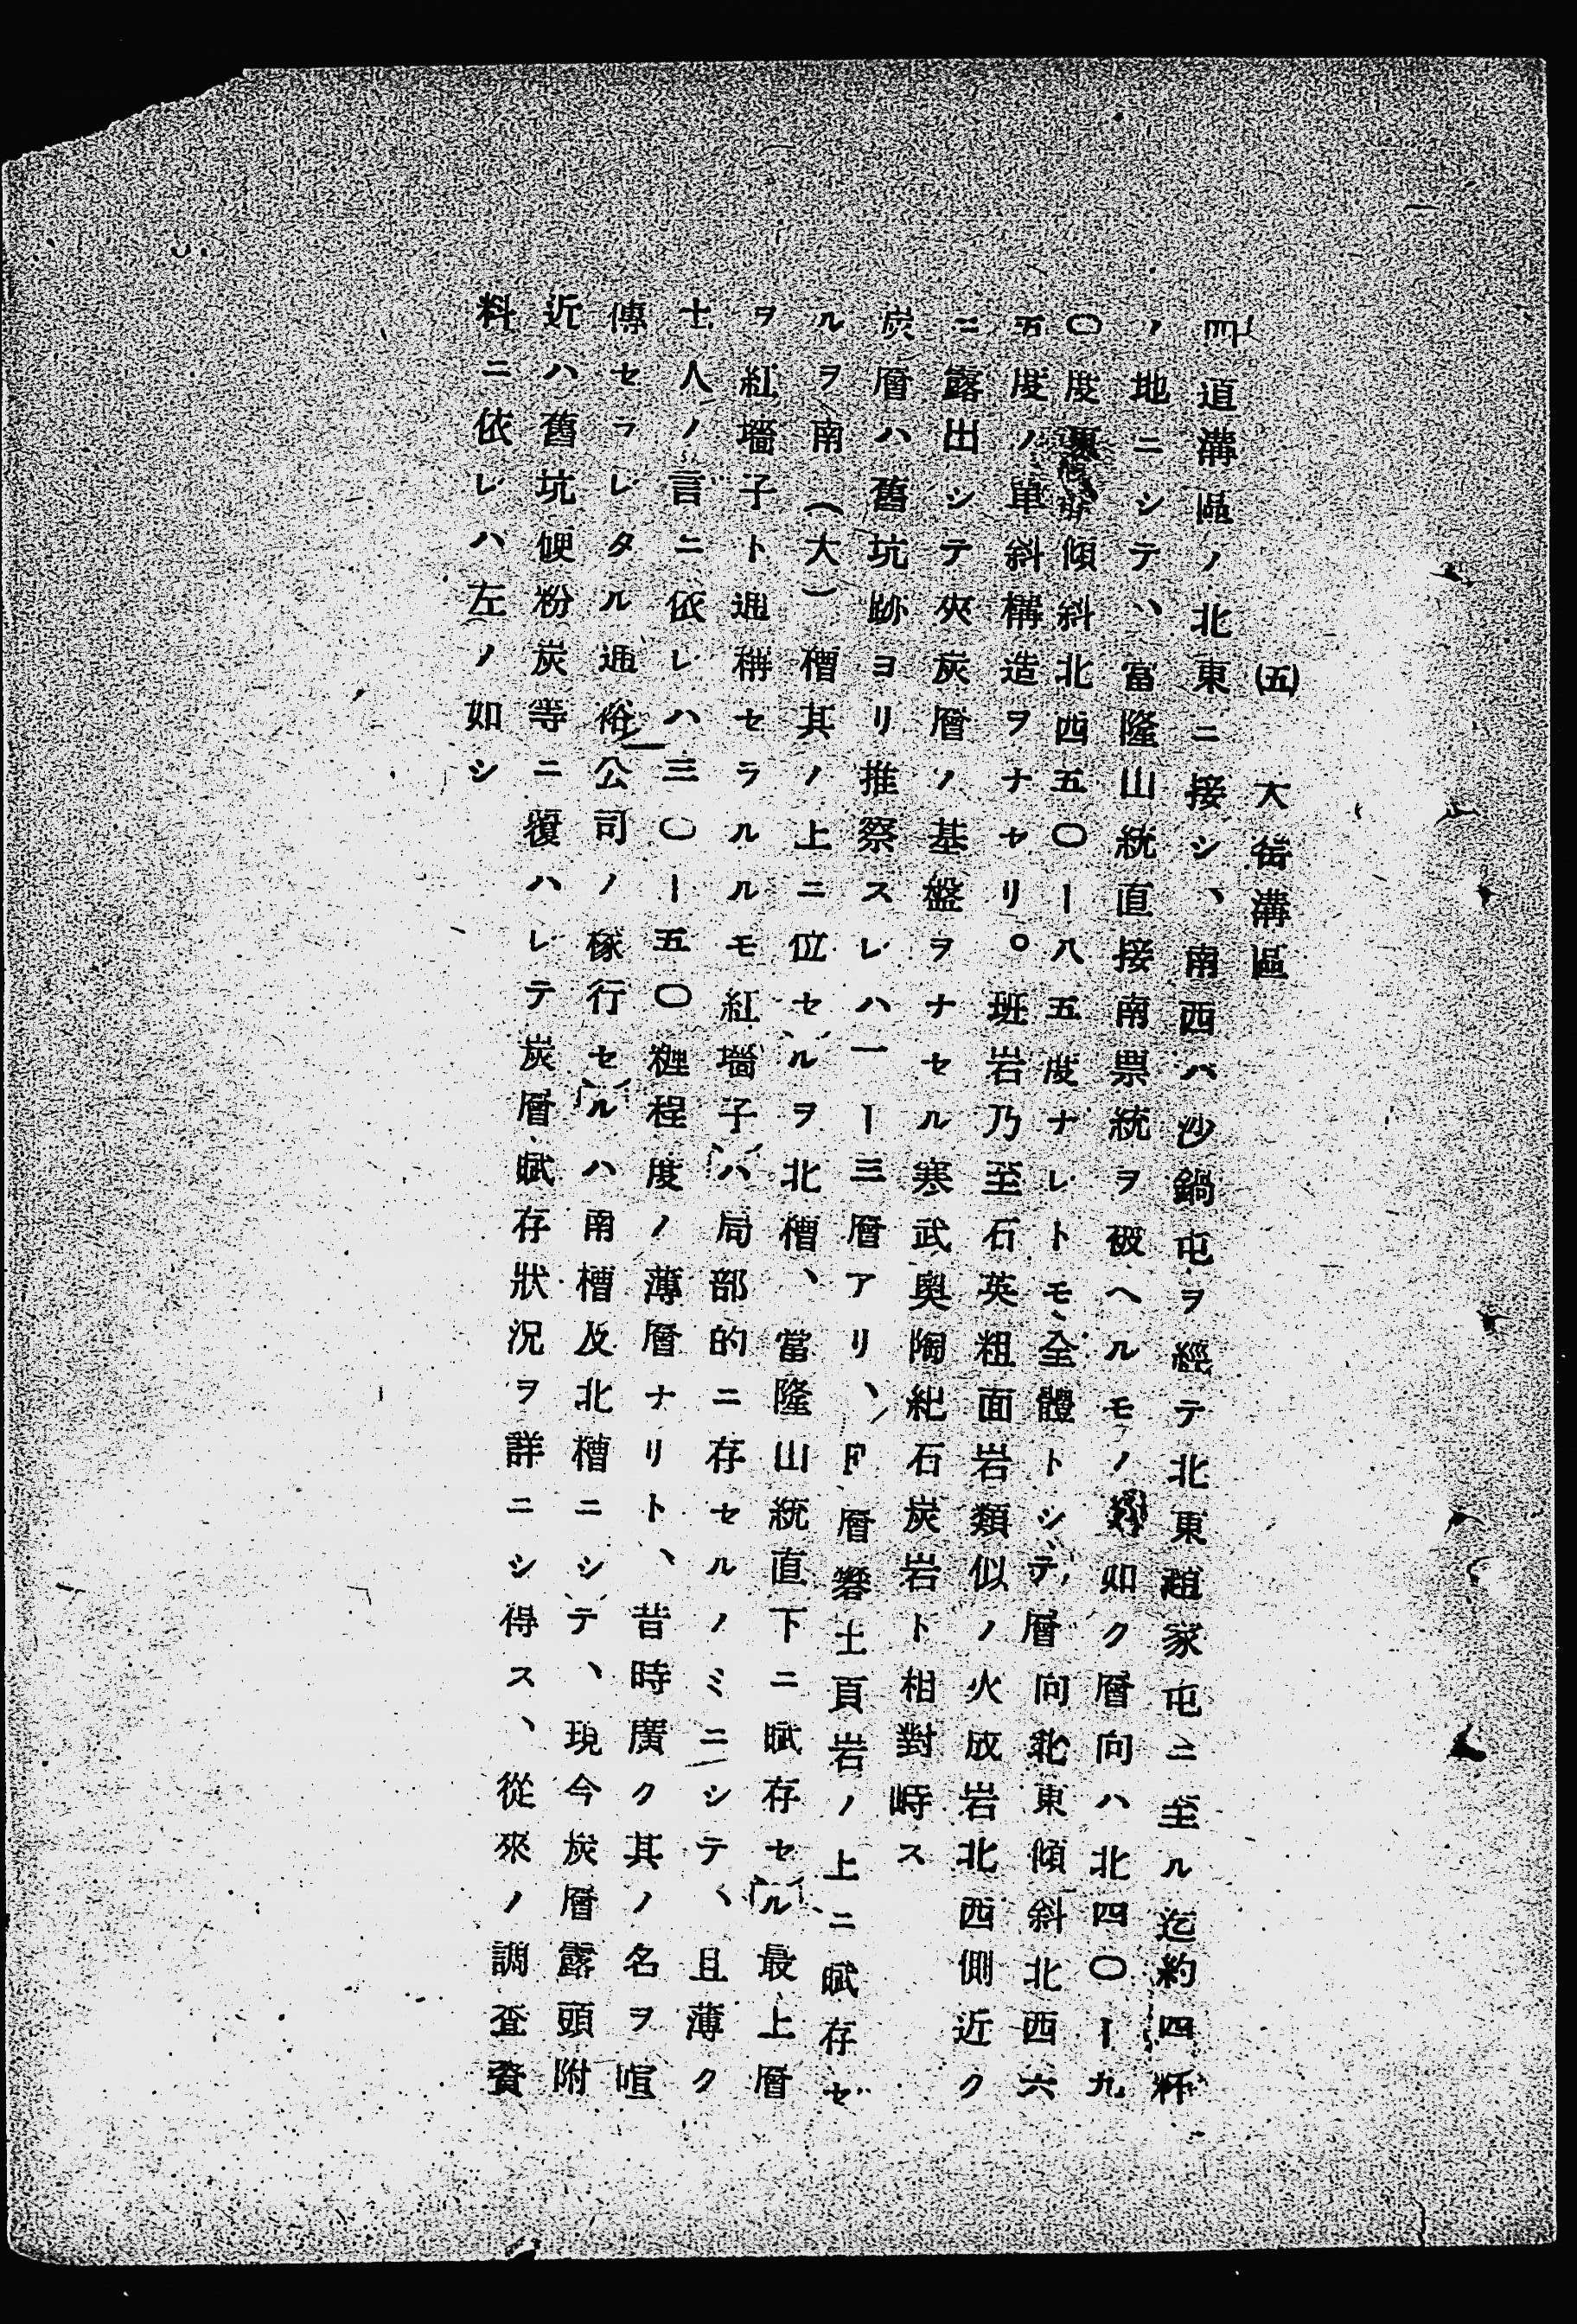 (五) 大窑溝區
四道溝區ノ北東ニ接シ、南西ハ沙鍋屯ヲ經テ北東趙家屯ニ至ル迄約四粁
ノ地ニシテ、富隆山統直接南票統ヲ被ヘルモノ如ク層向ハ北四〇ー九
〇度傾斜北西五〇ー八五度ナレトモ全體トシテ層向北東傾斜北西六
五度ノ単斜構造ヲナセリ。玢岩乃至石英粗面岩類似ノ火成岩北西側近ク
ニ露出シテ夾炭層ノ基盤ヲナセル寒武奥陶紀石灰岩ト相對峙ス
炭層ハ舊坑跡ヨリ推察スレハ一ー三層アリ、F層礬土頁岩ノ上ニ賦存セ
ルヲ南(大)槽其ノ上ニ位セルヲ北槽、富隆山統直下ニ賦存セル最上層
ヲ紅墻子ト通稱セラルルモ紅墻子ハ局部的ニ存セルノミニシテ、且薄ク
土人ノ言ニ依レハ三〇ー五〇糎程度ノ薄層ナリト、昔時廣ク其ノ名ヲ喧
傳セラレタル通裕公司ノ稼行セルハ南槽及北槽ニシテ、現今炭層露頭附
近ハ舊坑硬粉炭等ニ覆ハレテ炭層賦存狀況ヲ詳ニシ得ス、從來ノ調査資
料ニ依レハ左ノ如シ